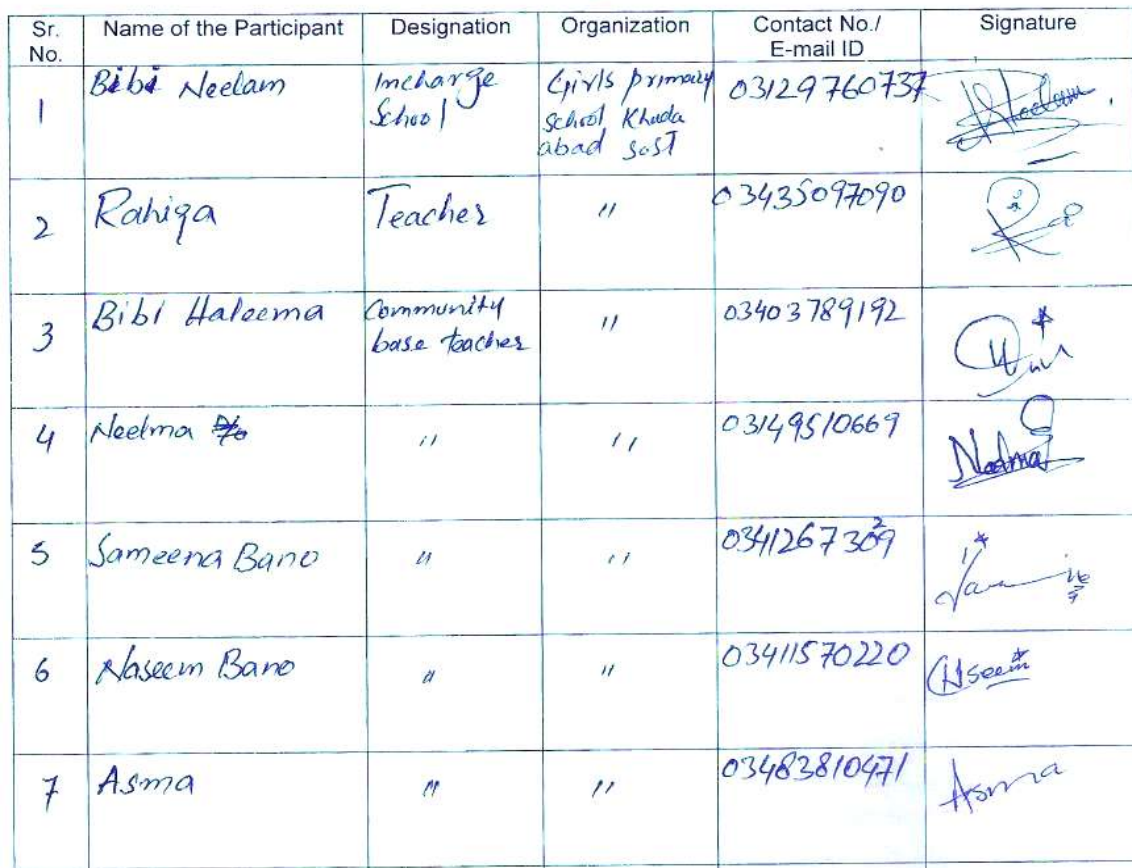 Sr. No. Name of the Participant Designation Organization Contact No./ E-mail ID Signature
1 Bibi Neelam Incharge School Girls primary school Khuda abad sost 03129760737
2 Rahiqa Teacher " 03435097090
3 Bibi Haleema Community base teacher " 03403789192
4 Neelma " " 03149510669 Neelma
5 Sameena Bano " "
6 Naseem Bano " " 03411570220
7 Asma " " 03483810471 Asma